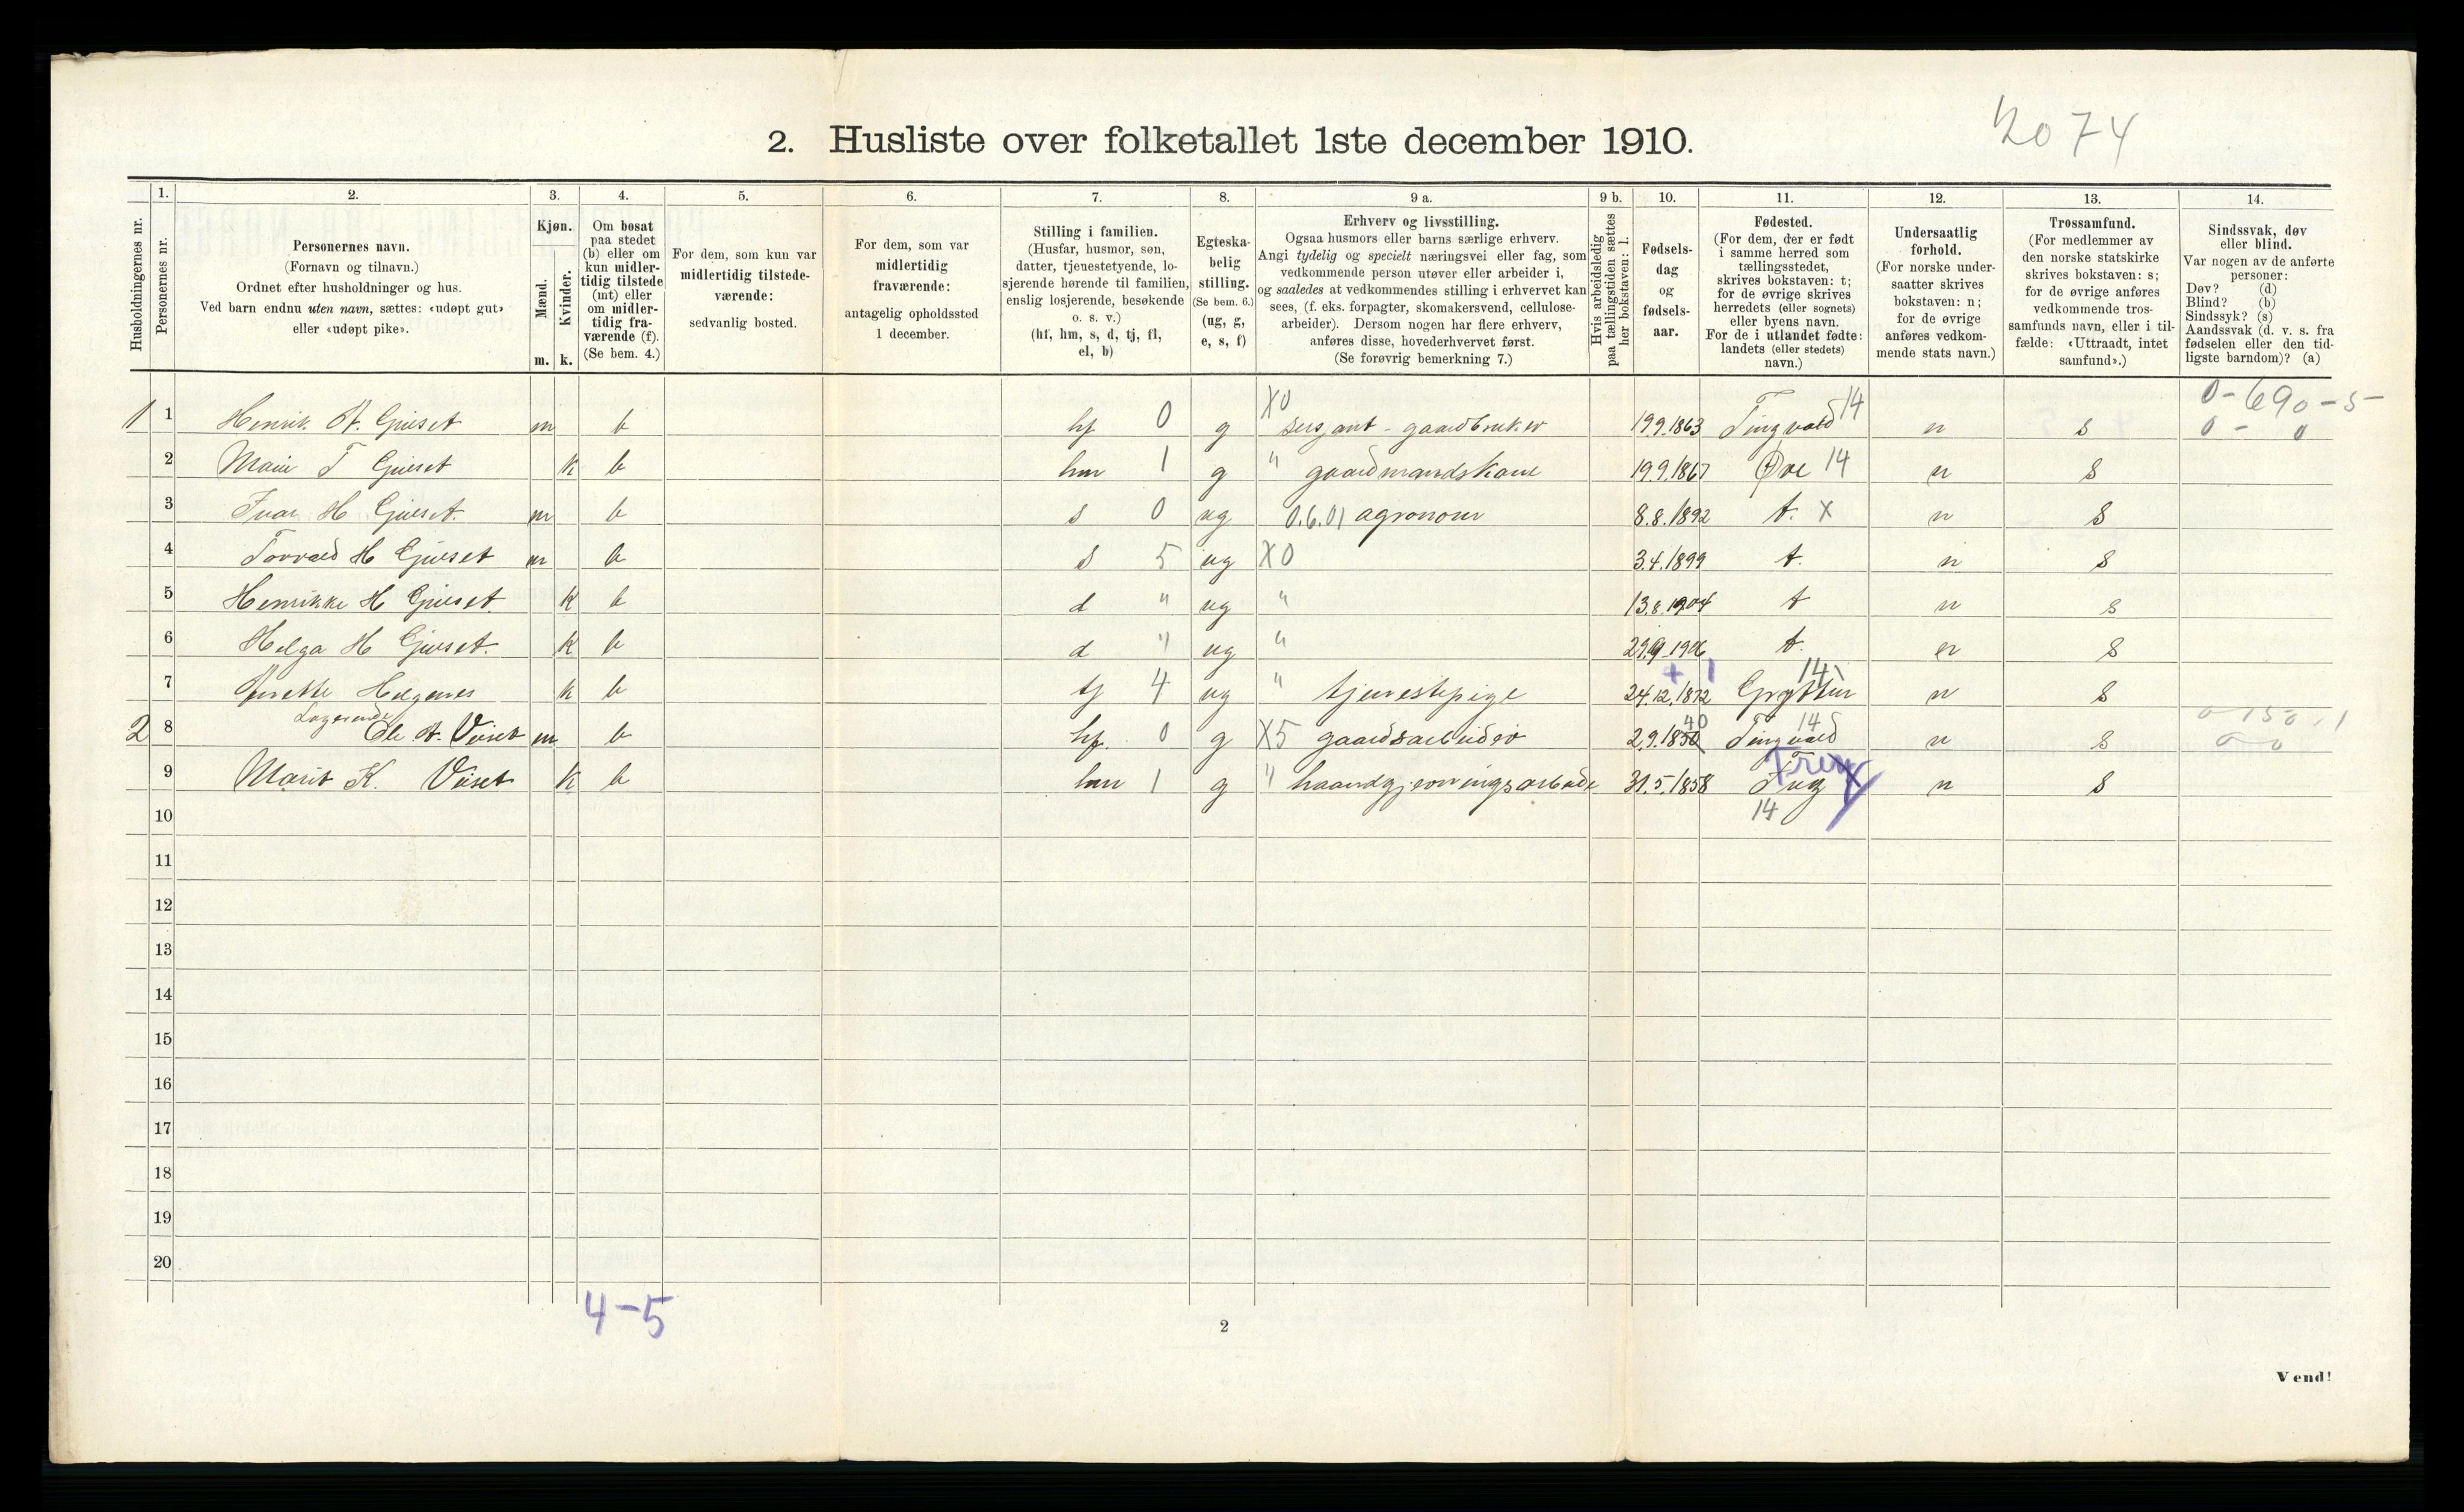 2. Husliste over folketallet 1ste december 1910.
2074
1. 2. 3. 4. 5. 6. 7. 8. 9 a. 9 b. 10. 11. 12. 13. 14.
Husholdningernes nr.
Personernes nr.
Personernes navn.
(Fornavn og tilnavn.)
Ordnet efter husholdninger og hus.
Ved barn endnu uten navn, sættes: «udøpt gut»
eller «udøpt pike».
Kjøn.
Mænd.
Kvinder.
m. k.
Om bosat
paa stedet
(b) eller om
kun midler-
tidig tilstede
(mt) eller
om midler-
tidig fra-
værende (f).
(Se bem. 4.)
For dem, som kun var
midlertidig tilstede-
værende:
sedvanlig bosted.
For dem, som var
midlertidig
fraværende:
antagelig opholdssted
1 december.
Stilling i familien.
(Husfar, husmor, søn,
datter, tjenestetyende, lo-
sjerende hørende til familien,
enslig losjerende, besøkende
o. s. v.)
(hf, hm, s, d, tj, fl,
el, b)
Egteska-
belig
stilling.
(Se bem. 6.)
(ug, g,
e, s, f)
Erhverv og livsstilling.
Ogsaa husmors eller barns særlige erhverv.
Angi tydelig og specielt næringsvei eller fag, som
vedkommende person utøver eller arbeider i,
og saaledes at vedkommendes stilling i erhvervet kan
sees, (f. eks. forpagter, skomakersvend, cellulose-
arbeider). Dersom nogen har flere erhverv,
anføres disse, hovederhvervet først.
(Se forøvrig bemerkning 7.)
Hvis arbeidsledig
paa tællingstiden sættes
her bokstaven: l.
Fødsels-
dag
og
fødsels-
aar.
Fødested.
(For dem, der er født
i samme herred som
tællingsstedet,
skrives bokstaven: t;
for de øvrige skrives
herredets (eller sognets)
eller byens navn.
For de i utlandet fødte:
landets (eller stedets)
navn.)
Undersaatlig
forhold.
(For norske under-
saatter skrives
bokstaven: n;
for de øvrige
anføres vedkom-
mende stats navn.)
Trossamfund.
(For medlemmer av
den norske statskirke
skrives bokstaven: s;
for de øvrige anføres
vedkommende tros-
samfunds navn, eller i til-
fælde: «Uttraadt, intet
samfund».)
Sindssvak, døv
eller blind.
Var nogen av de anførte
personer:
Døv? (d)
Blind? (b)
Sindssyk? (s)
Aandssvak (d. v. s. fra
fødselen eller den tid-
ligste barndom)? (a)
0-690-5-
1 1 Henrik A. Gjuset m b hf 0 g X0 sersjant - gaardbruker 19.9.1863 Tingvold 14 n s 0 - 0
2 T Gjuset k b hm 1 g " gaardmandskone 19.9.1867 Øre 14 n s
3 Ivar H Gjuset. m b s 0 ug 0.6.01 agronom 8.8.1892 t. X n s
4 Torvald H Gjuset m b s 5 ug X0 3.4.1899 t. n s
5 Henrikke H Gjuset. k b d " ug " 13.8.1904 t n s
6 Helga H Gjuset. k b d " ug " 1906 t. n s
+ 1
7 k b tj 4 ug " tjenestepige 24.12.1872 14 n s
2 8 Ole A. Viset m b hf. 0 g X5 gaardsarbeider 2.9.1850 40 Tingvold 14 n s
9 Marit K. Viset k b hm 1 g " haandgjerningsarbeide 31.5.1858 Frei 14 n s
10
11
12
13
14
15
16
17
18
19
20
4-5
2
Vend!